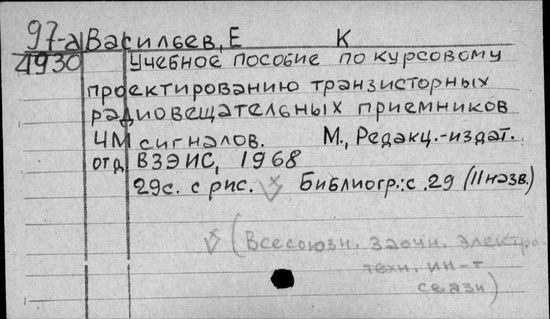 97-а Васильев, Е К
4930 Учебное пособие по курсовому
проектированию транзисторных
радиовещательных приемников
ЧМ сигналов. М., Редакц.-издат.
отд ВЗЭИС, 1968
29с. с рис. Библиогр.: с. 29 (11 назв.)
(Всесоюзн. заочн. электро
техн. ин-т
связи)